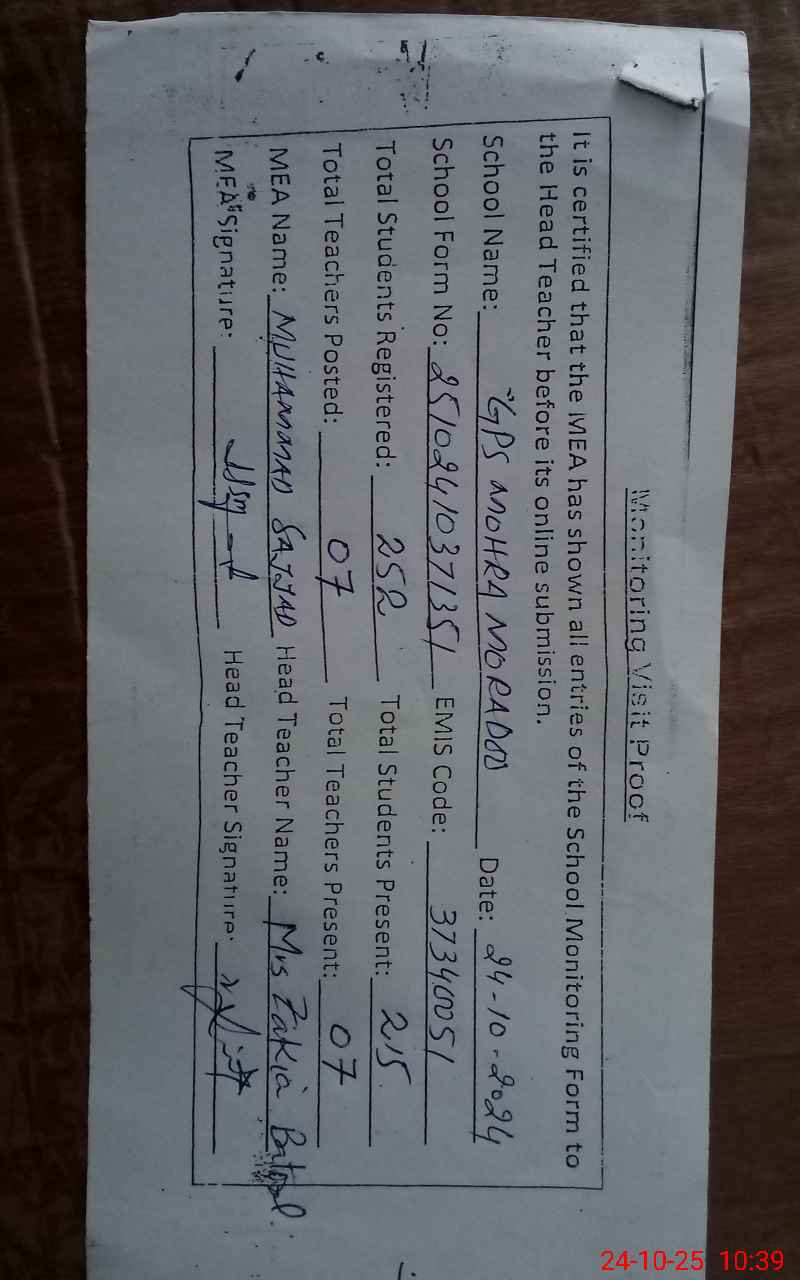 Monitoring Visit Proof
It is certified that the MEA has shown all entries of the School Monitoring Form to
the Head Teacher before its online submission.
School Name: GPS MOHRA MORADOO Date: 24-10-2024
School Form No: 25102410371351 EMIS Code: 37340051
Total Students Registered: 252 Total Students Present: 215
Total Teachers Posted: 07 Total Teachers Present: 07
MEA Name: MUHAMMAD SAJJAD Head Teacher Name: Mrs Zakia Batool.
MEA Signature: Head Teacher Signature:
24-10-25 10:39